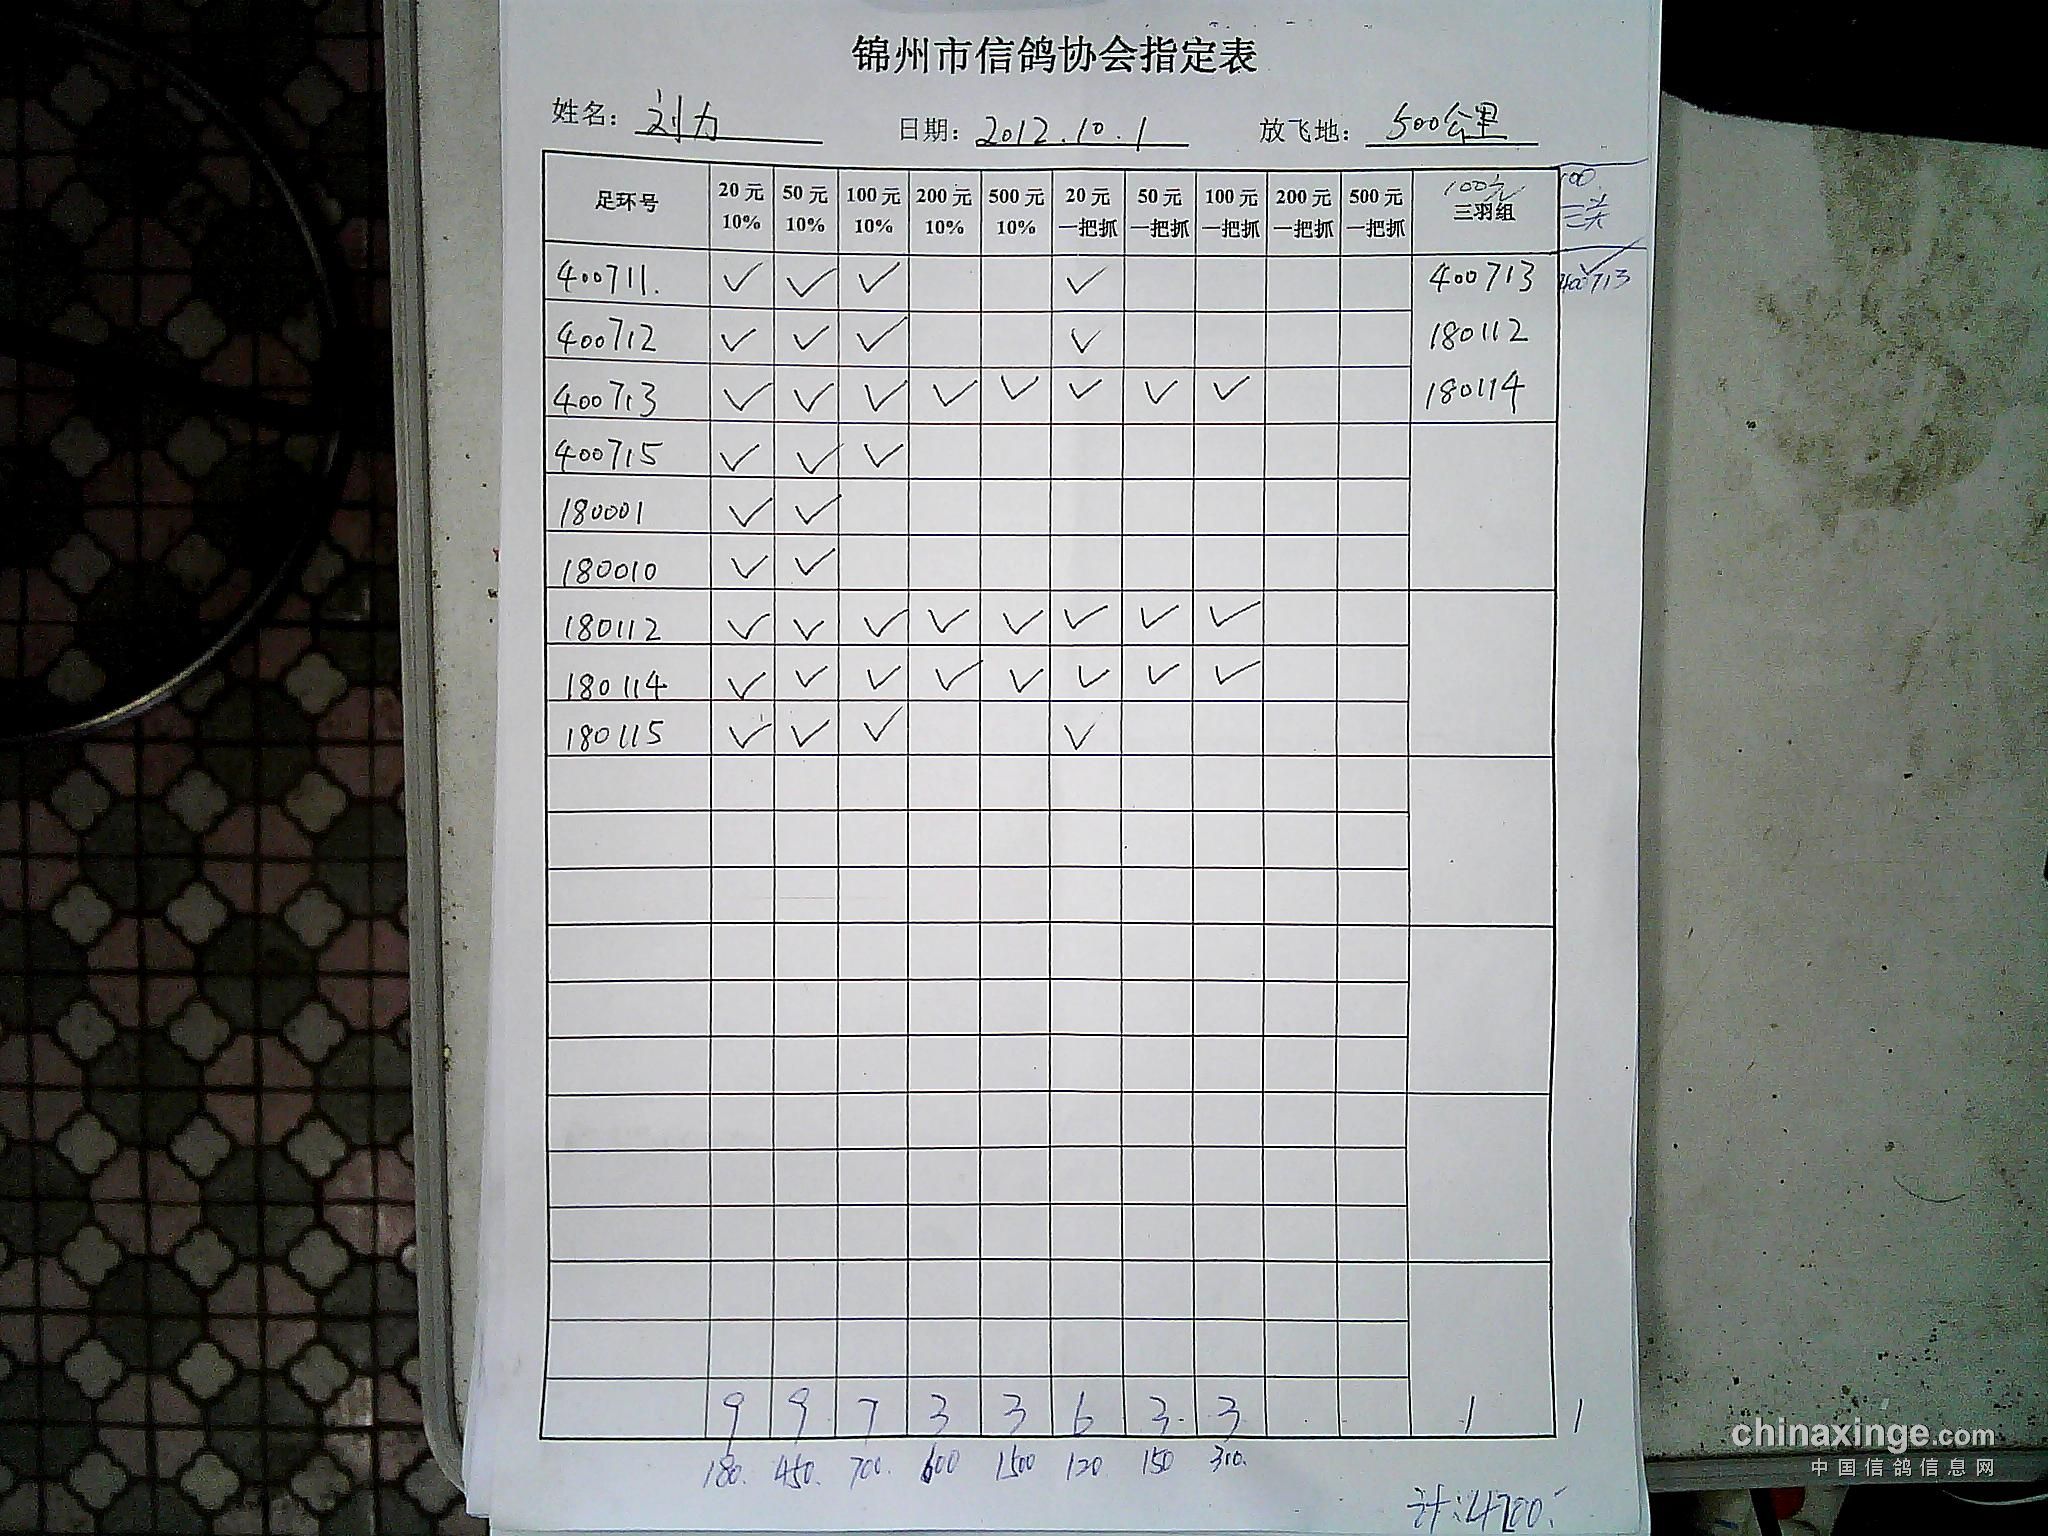 锦州市信鸽协会指定表
姓名：刘力 日期：2012.10.1 放飞地：500公里
足环号 20元 10% 50元 10% 100元 10% 200元 10% 500元 10% 20元 一把抓 50元 一把抓 100元 一把抓 200元 一把抓 500元 一把抓 100元 三羽组 100 三关
400711. ✓ ✓ ✓ ✓ 400713 ✓ 400713
400712 ✓ ✓ ✓ ✓ 180112
400713 ✓ ✓ ✓ ✓ ✓ ✓ ✓ ✓ 180114
400715 ✓ ✓ ✓
180001 ✓ ✓
180010 ✓ ✓
180112 ✓ ✓ ✓ ✓ ✓ ✓ ✓ ✓
180114 ✓ ✓ ✓ ✓ ✓ ✓ ✓ ✓
180115 ✓ ✓ ✓ ✓
9 9 7 3 3 6 3 3 1 1
180. 450. 700. 600 1500 120 150 300.
计:4200.
chinaxinge.com
中国信鸽信息网